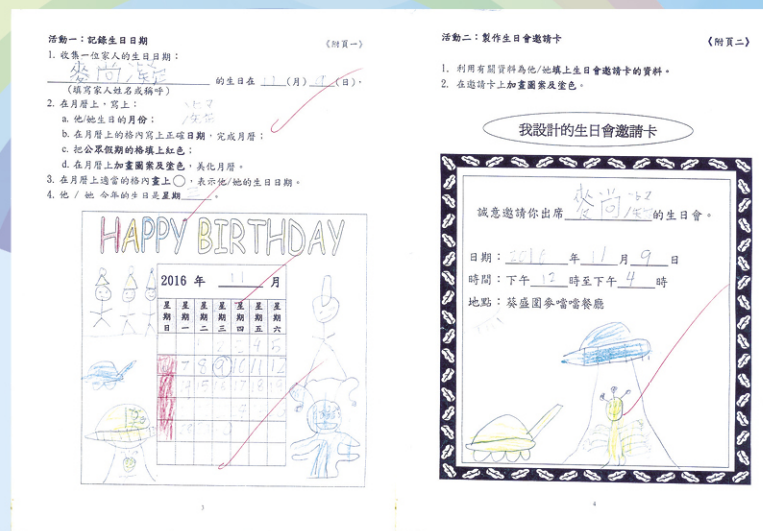 活動一：記錄生日日期
《附頁一》
1. 收集一位家人的生日日期：
麥尚 的生日在 11 (月) 9 (日)。
(填寫家人姓名或稱呼)
2. 在月曆上，寫上：
a. 他/她生日的月份；
b. 在月曆上的格內寫上正確日期，完成月曆；
c. 把公眾假期的格填上紅色；
d. 在月曆上加畫圖案及塗色，美化月曆。
3. 在月曆上適當的格內畫上○，表示他/她的生日日期。
4. 他 / 她 今年的生日是星期 三 。
HAPPY BIRTHDAY
2016 年 11 月
星期日 星期一 星期二 星期三 星期四 星期五 星期六
1 2 3 4 5
7 8 9 10 11 12
14 15 16 17 18 19
3
活動二：製作生日會邀請卡
《附頁二》
1. 利用有關資料為他/她填上生日會邀請卡的資料。
2. 在邀請卡上加畫圖案及塗色。
我設計的生日會邀請卡
誠意邀請你出席 麥尚 的生日會。
日期： 2016 年 11 月 9 日
時間：下午 12 時至下午 4 時
地點：葵盛圍麥噹噹餐廳
4